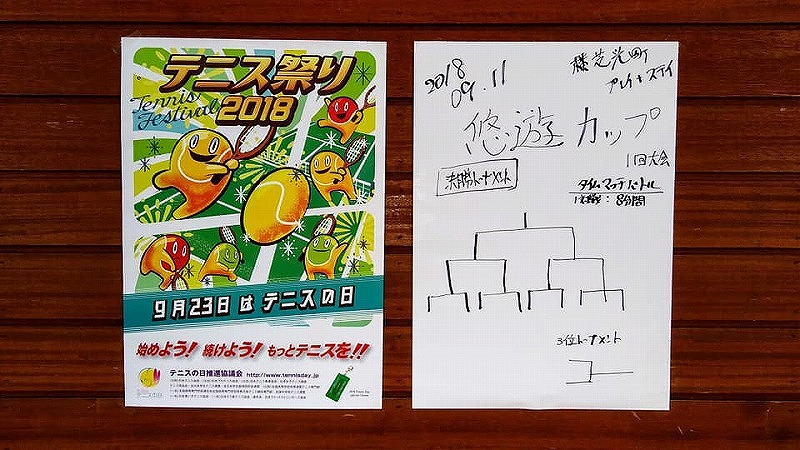 テニス祭り
Tennis
Festival
2018
9月23日 は テニスの日
始めよう! 続けよう! もっとテニスを!!
テニスの日推進協議会 http://www.tennisday.jp
テニスの日
2018
09.11
プレイ&ステイ
悠遊カップ
1回大会
決勝トーナメント
タイムマッチバトル
8分間
3位トーナメント